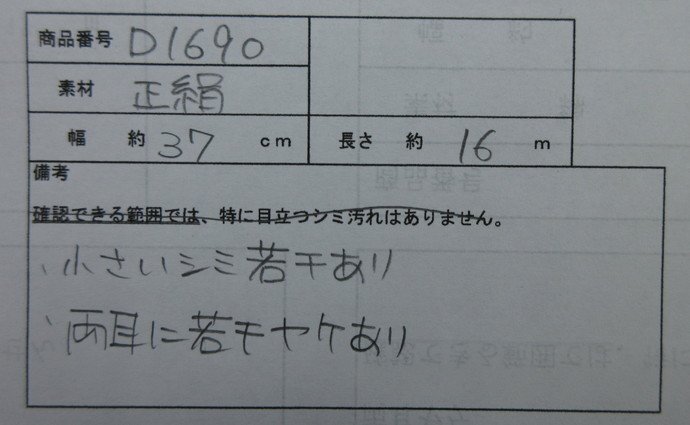 商品番号 D1690
素材 正絹
幅 約 37 cm 長さ 約 16 m
備考
確認できる範囲では、特に目立つシミ汚れはありません。
、小さいシミ若干あり
、両耳に若干ヤケあり
商品番号